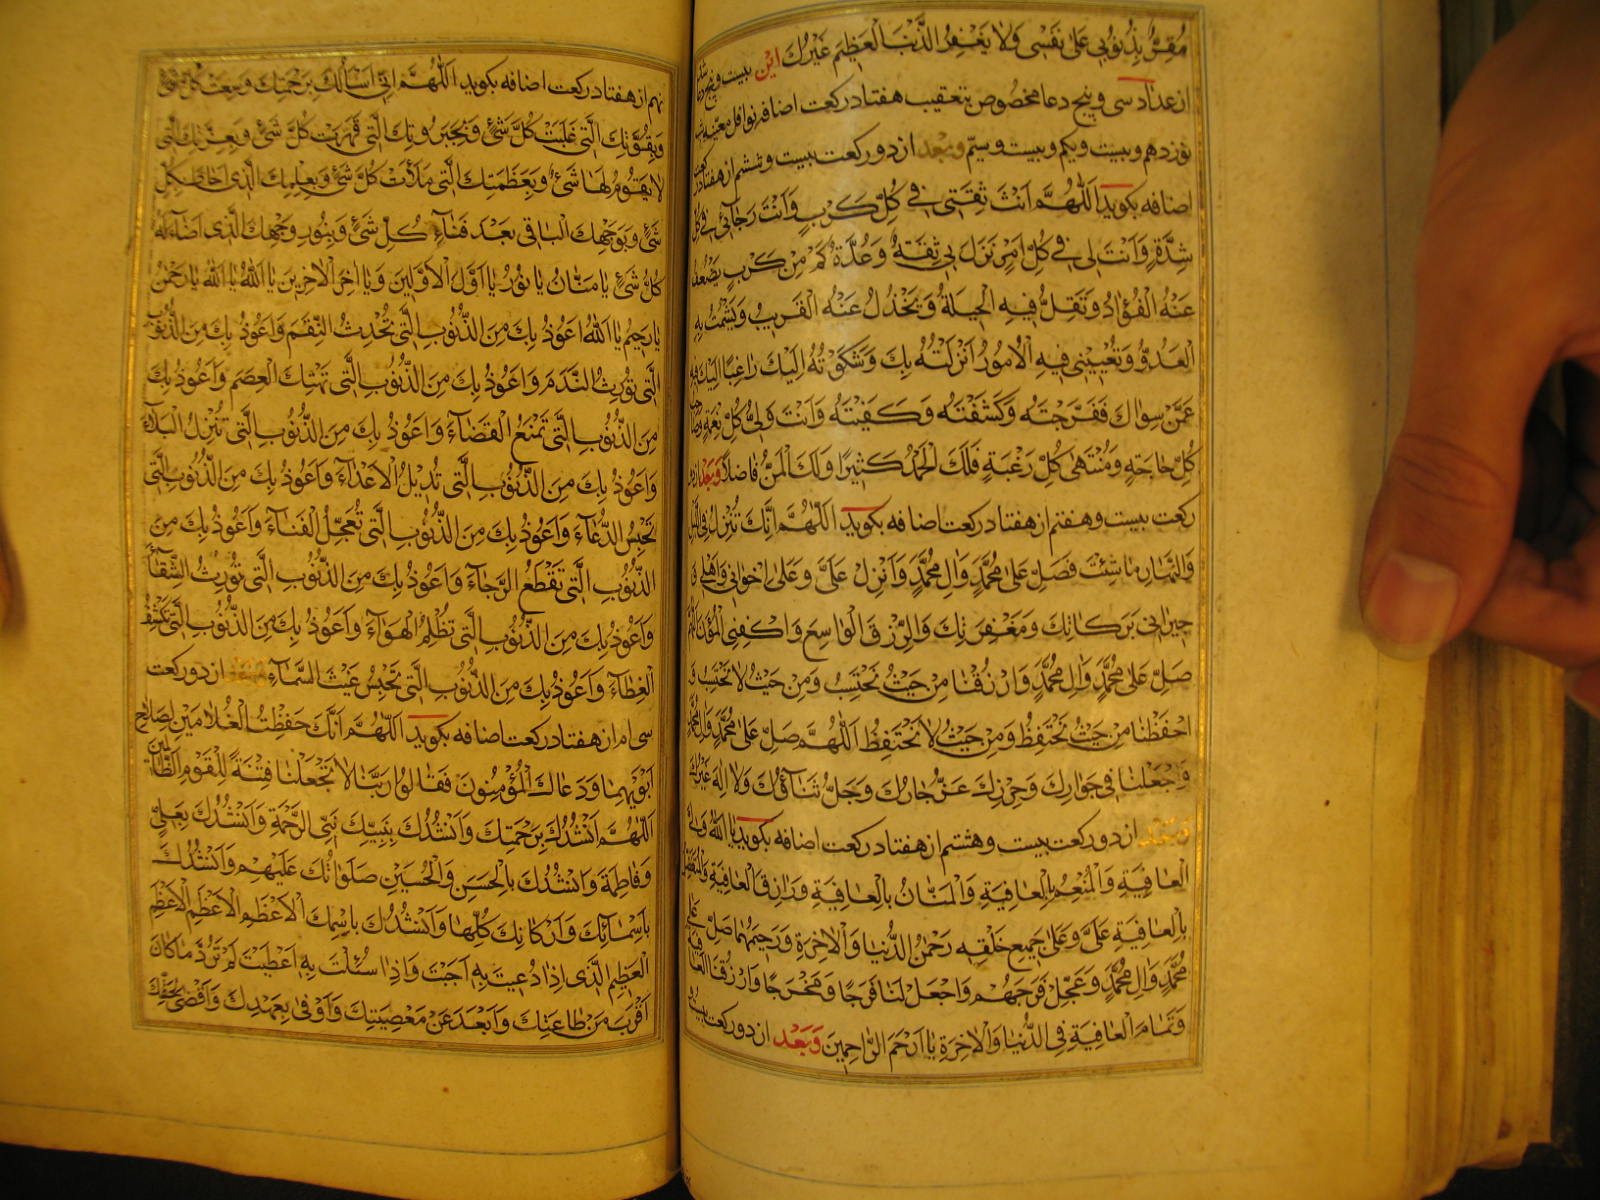 مُقِرٌّ بِذُنُوبي عَلىٰ نَفْسي وَلا يَغْفِرُ الذَّنْبَ الْعَظيمَ غَيْرُكَ این بیست و پنج
از عداد سی و پنج دعا مخصوص تعقیب هفتاد رکعت اضافه نوافل معینه
نوزدهم و بیست و یکم و بیست و سیّم وبعد از دو رکعت بیست و ششم از هفتاد رکعت
اضافه بکوید اَللّٰهُمَّ اَنْتَ ثِقَتي في كُلِّ كَرْبٍ وَاَنْتَ رَجٰائي في كُلِّ
شِدَّةٍ وَاَنْتَ لي في كُلِّ اَمْرٍ نَزَلَ بي ثِقَةٌ وَعُدَّةٌ كَمْ مِنْ كَرْبٍ يَضْعُفُ
عَنْهُ الْفُؤٰادُ وَتَقِلُّ فيهِ الْحيلَةُ وَيَخْذُلُ عَنْهُ الْقَريبُ وَيَشْمَتُ بِهِ
الْعَدُوُّ وَتُعْيِيني فيهِ الْاُمُورُ اَنْزَلْتُهُ بِكَ وَشَكَوْتُهُ اِلَيْكَ رٰاغِبًا اِلَيْكَ فيهِ
عَمَّنْ سِوٰاكَ فَفَرَّجْتَهُ وَكَشَفْتَهُ وَكَفَيْتَهُ وَاَنْتَ وَلِيُّ كُلِّ نِعْمَةٍ
كُلِّ حٰاجَةٍ وَمُنْتَهىٰ كُلِّ رَغْبَةٍ فَلَكَ الْحَمْدُ كَثيرًا وَلَكَ الْمَنُّ فٰاضِلًا وَبَعْد از دو
رکعت بیست و هفتم از هفتاد رکعت اضافه بکوید اَللّٰهُمَّ اِنَّكَ تُنْزِلُ فِي اللَّيْلِ
وَالنَّهٰارِ مٰا شِئْتَ فَصَلِّ عَلىٰ مُحَمَّدٍ وَاٰلِ مُحَمَّدٍ وَاَنْزِلْ عَلَيَّ وَعَلىٰ اِخْوٰاني وَاَهْلي وَ
جيرٰاني بَرَكٰاتِكَ وَمَغْفِرَتِكَ وَالرِّزْقَ الْوٰاسِعَ وَاكْفِنِي الْمُؤَنَ اَللّٰهُمَّ
صَلِّ عَلىٰ مُحَمَّدٍ وَاٰلِ مُحَمَّدٍ وَارْزُقْنٰا مِنْ حَيْثُ نَحْتَسِبُ وَمِنْ حَيْثُ لا نَحْتَسِبُ وَ
احْفَظْنٰا مِنْ حَيْثُ نَحْتَفِظُ وَمِنْ حَيْثُ لا نَحْتَفِظُ اَللّٰهُمَّ صَلِّ عَلىٰ مُحَمَّدٍ وَاٰلِ مُحَمَّدٍ
وَاجْعَلْنٰا في جِوٰارِكَ وَحِرْزِكَ عَزَّ جٰارُكَ وَجَلَّ ثَنٰاؤُكَ وَلا اِلٰهَ غَيْرُكَ
وَبَعْد از دو رکعت بیست و هشتم از هفتاد رکعت اضافه بکوید يٰا اَللّٰهُ وَلِيَّ
الْعٰافِيَةِ وَالْمُنْعِمُ بِالْعٰافِيَةِ وَالْمَنّٰانُ بِالْعٰافِيَةِ وَرٰازِقَ الْعٰافِيَةِ وَالْمُتَفَضِّلُ
بِالْعٰافِيَةِ عَلَيَّ وَعَلىٰ جَميعِ خَلْقِهِ رَحْمٰنَ الدُّنْيٰا وَالْاٰخِرَةِ وَرَحيمَهُمٰا صَلِّ عَلىٰ
مُحَمَّدٍ وَاٰلِ مُحَمَّدٍ وَعَجِّلْ فَرَجَهُمْ وَاجْعَلْ لَنٰا فَرَجًا وَمَخْرَجًا وَارْزُقْنَا الْعٰافِيَةَ
وَتَمٰامَ الْعٰافِيَةِ فِي الدُّنْيٰا وَالْاٰخِرَةِ يٰا اَرْحَمَ الرّٰاحِمينَ وَبَعْد از دو رکعت بیست
نهم از هفتاد رکعت اضافه بکوید اَللّٰهُمَّ اِنّي اَسْاَلُكَ بِرَحْمَتِكَ الَّتي وَسِعَتْ كُلَّ شَيْءٍ
وَبِقُوَّتِكَ الَّتي غَلَبَتْ كُلَّ شَيْءٍ وَبِجَبَرُوتِكَ الَّتي قَهَرَتْ كُلَّ شَيْءٍ وَبِعِزَّتِكَ الَّتي
لا يَقُومُ لَهٰا شَيْءٌ وَبِعَظَمَتِكَ الَّتي مَلَأَتْ كُلَّ شَيْءٍ وَبِعِلْمِكَ الَّذي اَحٰاطَ بِكُلِّ
شَيْءٍ وَبِوَجْهِكَ الْبٰاقي بَعْدَ فَنٰآءِ كُلِّ شَيْءٍ وَبِنُورِ وَجْهِكَ الَّذي اَضٰآءَ لَهُ
كُلُّ شَيْءٍ يٰا مَنّٰانُ يٰا نُورُ يٰا اَوَّلَ الْاَوَّلينَ وَيٰا اٰخِرَ الْاٰخِرينَ يٰا اَللّٰهُ يٰا اَللّٰهُ يٰا رَحْمٰنُ
يٰا رَحيمُ يٰا اَللّٰهُ اَعُوذُ بِكَ مِنَ الذُّنُوبِ الَّتي تُحْدِثُ النِّقَمَ وَاَعُوذُ بِكَ مِنَ الذُّنُوبِ
الَّتي تُورِثُ النَّدَمَ وَاَعُوذُ بِكَ مِنَ الذُّنُوبِ الَّتي تَهْتِكُ الْعِصَمَ وَاَعُوذُ بِكَ
مِنَ الذُّنُوبِ الَّتي تَمْنَعُ الْقَضٰآءَ وَاَعُوذُ بِكَ مِنَ الذُّنُوبِ الَّتي تُنْزِلُ الْبَلٰآءَ
وَاَعُوذُ بِكَ مِنَ الذُّنُوبِ الَّتي تُديلُ الْاَعْدٰآءَ وَاَعُوذُ بِكَ مِنَ الذُّنُوبِ الَّتي
تَحْبِسُ الدُّعٰآءَ وَاَعُوذُ بِكَ مِنَ الذُّنُوبِ الَّتي تُعَجِّلُ الْفَنٰآءَ وَاَعُوذُ بِكَ مِنَ
الذُّنُوبِ الَّتي تَقْطَعُ الرَّجٰآءَ وَاَعُوذُ بِكَ مِنَ الذُّنُوبِ الَّتي تُورِثُ الشَّقٰآءَ
وَاَعُوذُ بِكَ مِنَ الذُّنُوبِ الَّتي تُظْلِمُ الْهَوٰآءَ وَاَعُوذُ بِكَ مِنَ الذُّنُوبِ الَّتي تَكْشِفُ
الْغِطٰآءَ وَاَعُوذُ بِكَ مِنَ الذُّنُوبِ الَّتي تَحْبِسُ غَيْثَ السَّمٰآءِ وَبَعْد از دو رکعت
سی ام از هفتاد رکعت اضافه بکوید اَللّٰهُمَّ اِنَّكَ حَفِظْتَ الْغُلامَيْنِ لِصَلٰاحِ
اَبَوَيْهِمٰا وَدَعٰاكَ الْمُؤْمِنُونَ فَقٰالُوا رَبَّنٰا لا تَجْعَلْنٰا فِتْنَةً لِلْقَوْمِ الظّٰالِمينَ
اَللّٰهُمَّ اَنْشُدُكَ بِرَحْمَتِكَ وَاَنْشُدُكَ بِنَبِيِّكَ نَبِيِّ الرَّحْمَةِ وَاَنْشُدُكَ بِعَلِيٍّ
وَفٰاطِمَةَ وَاَنْشُدُكَ بِالْحَسَنِ وَالْحُسَيْنِ صَلَوٰاتُكَ عَلَيْهِمْ وَاَنْشُدُكَ
بِاَسْمٰائِكَ وَاَرْكٰانِكَ كُلِّهٰا وَاَنْشُدُكَ بِاسْمِكَ الْاَعْظَمِ الْاَعْظَمِ الْاَعْظَمِ
الْعَظيمِ الَّذي اِذٰا دُعيتَ بِهِ اَجَبْتَ وَاِذٰا سُئِلْتَ بِهِ اَعْطَيْتَ لَمْ تَرُدَّ مٰا كٰانَ
اَقْرَبَ مِنْ طٰاعَتِكَ وَاَبْعَدَ عَنْ مَعْصِيَتِكَ وَاَوْفىٰ بِعَهْدِكَ وَاَقْضىٰ لِحَقِّكَ